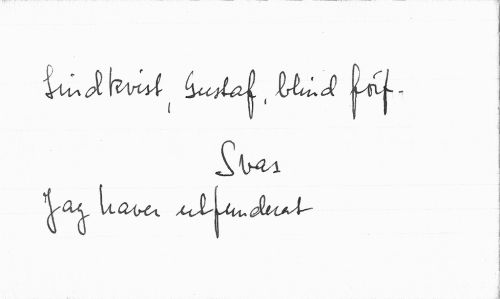 Lindkvist, Gustaf, blind förf.
Svar
Jag haver utfunderat